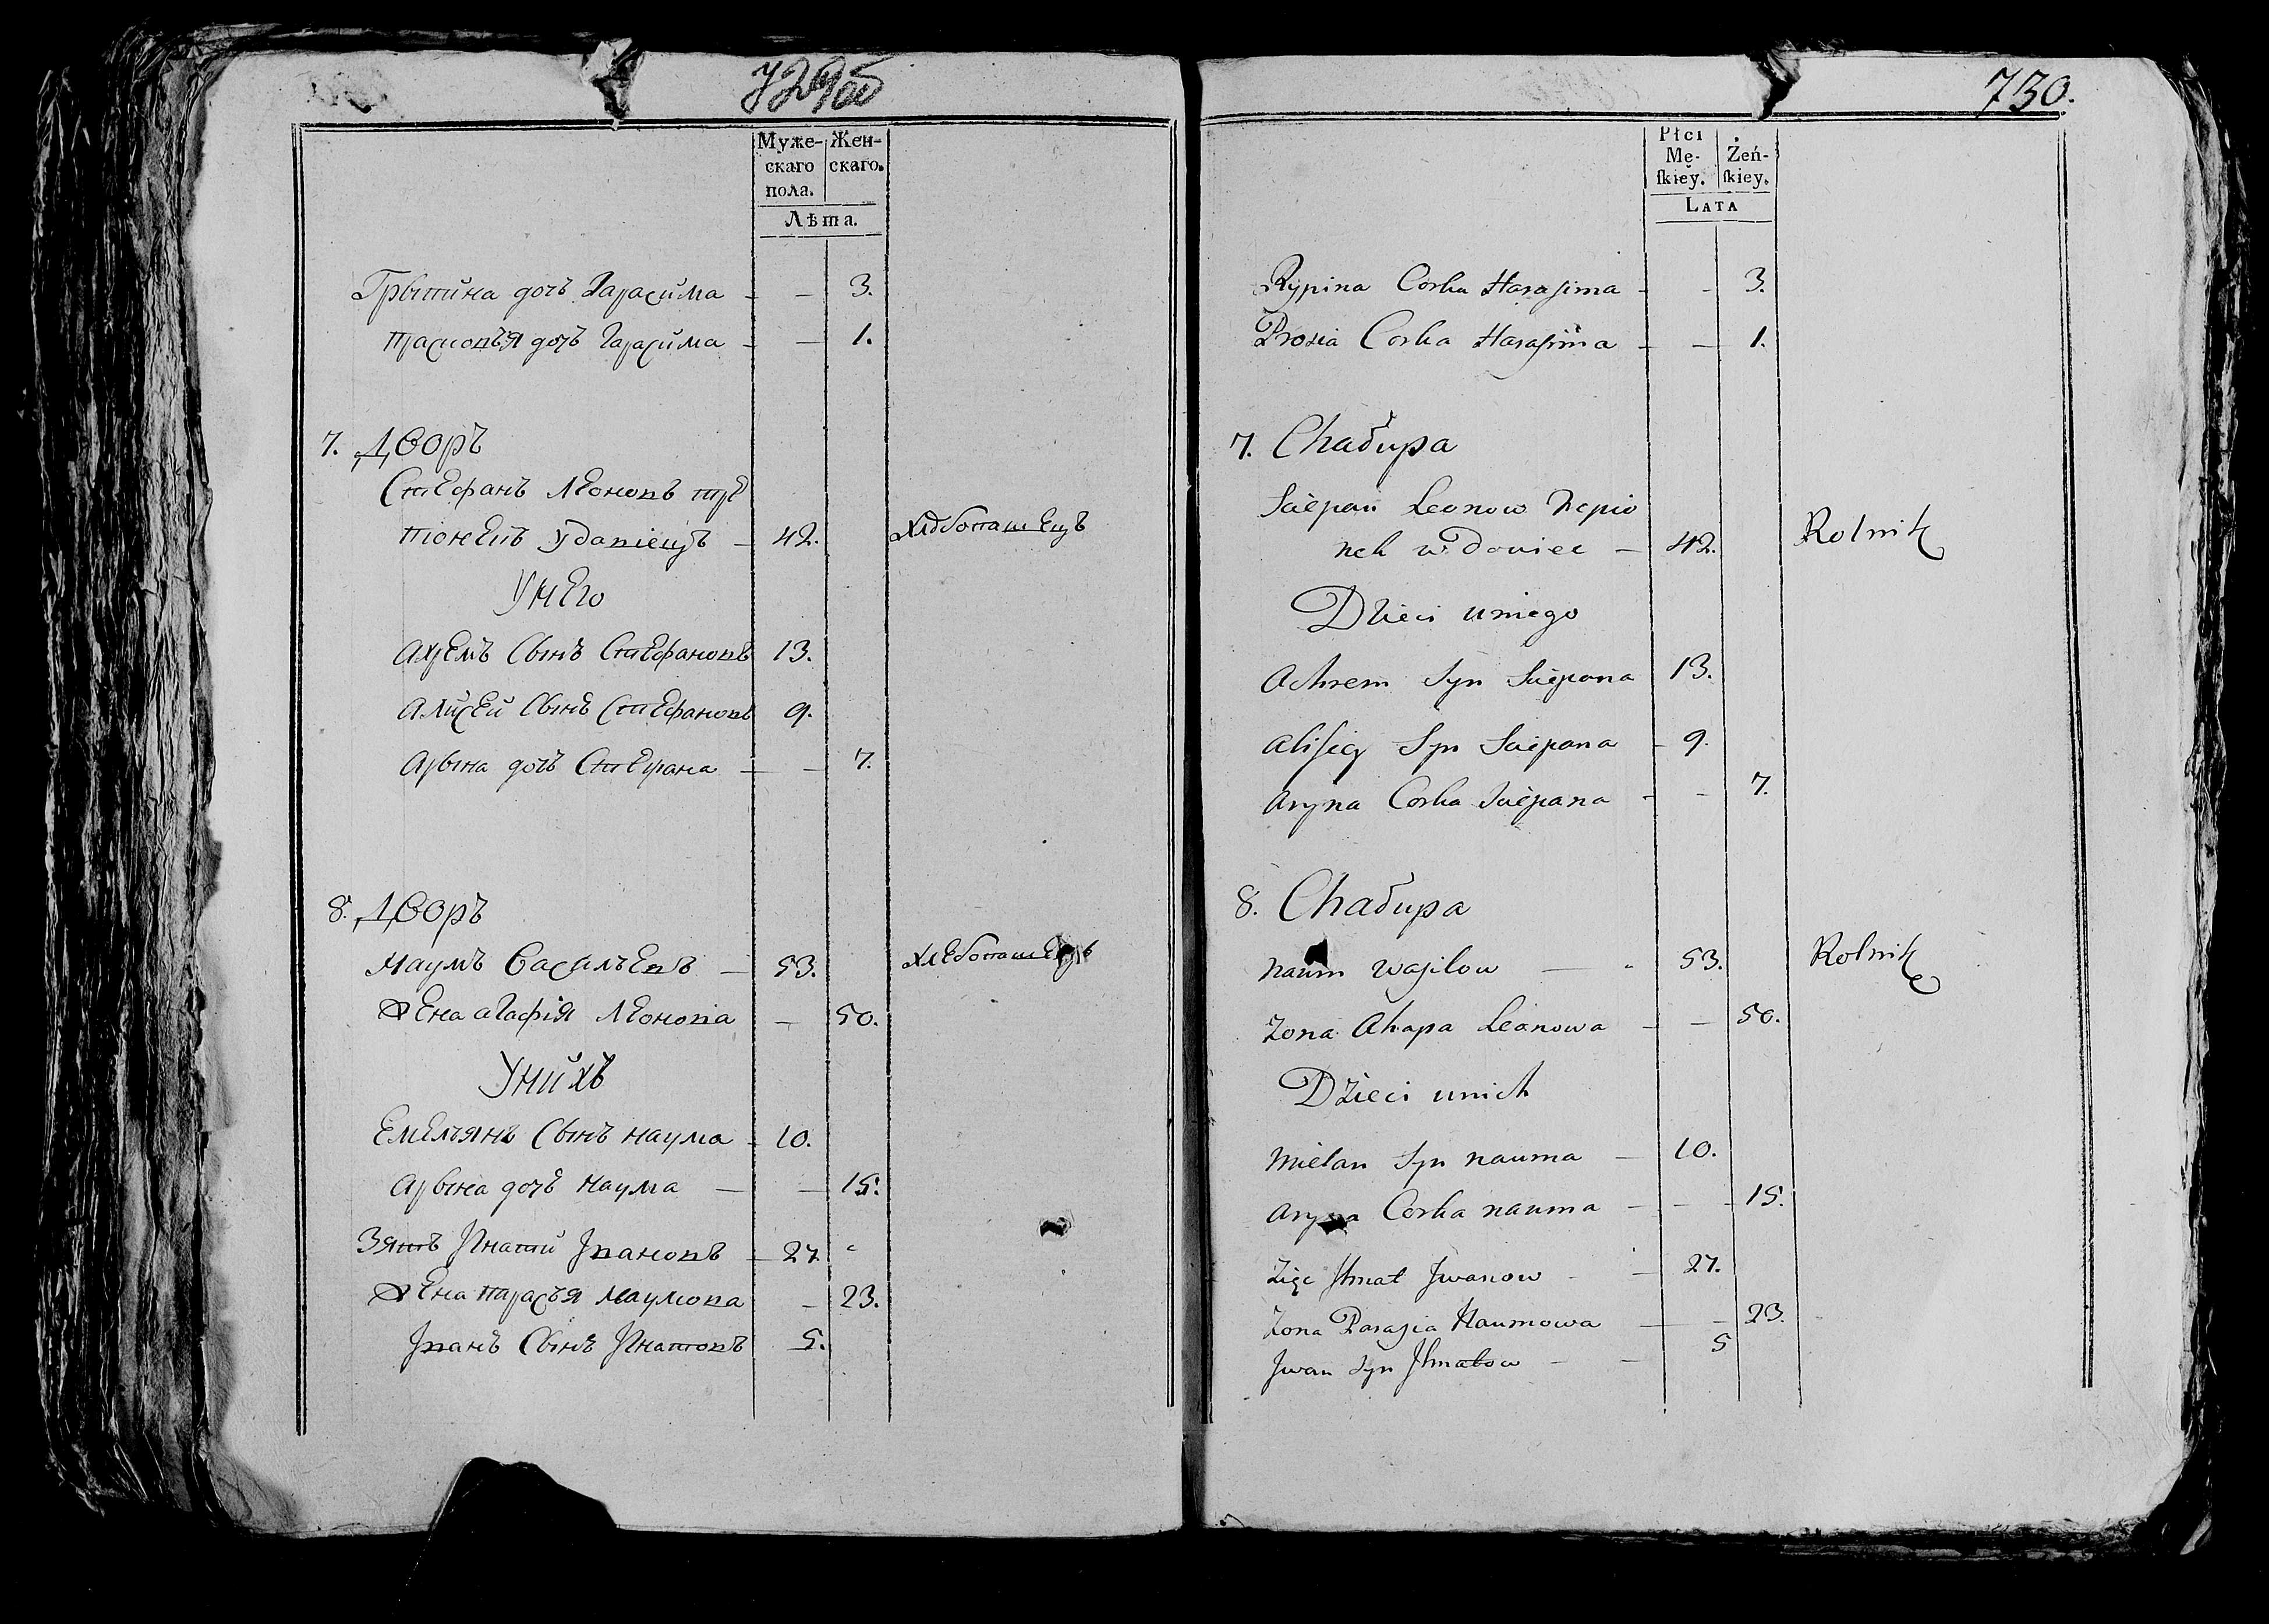 729об
Муже-
скаго
пола.
Жен-
скаго.
Лѣта.
Грыпина дочъ Гарасима - - 3.
Прасковъя дочъ Гарасима - - 1.
7. Дворъ
Стефанъ Леоновъ
42. хлѣбопашецъ
У него
Ахремъ Сынъ Стефановъ 13.
Алисей Сынъ Стефановъ 9.
Арына дочъ Стефана - - 7.
8. Дворъ
Наумъ Васильевъ - 53. хлебопашецъ
жена агафія Леонова - 50.
У нихъ
Емелъянъ Сынъ наума - 10.
Арына дочъ наума - - 15.
Зять Игнатій Ивановъ - 27.
жена парасъя наумова - 23.
Иванъ Сынъ Игнатовъ 5.
730.
Płci
Mę-
ſkiey.
Żeń-
ſkiey.
LATA
Rypina Corka Harasima - - 3.
Prosia Corka Harasima - - 1.
7. Chałupa
Sciepan Leonow
wdowiec - 42. Rolnik
Dzieci u niego
Achrem Syn Sciepana 13.
Alisiey Syn Sciepana - 9.
Aryna Corka Sciepana - - 7.
8. Chałupa
Naum Wasilow - - 53. Rolnik
Zona Ahapa Leonowa - - 50.
Dzieci u nich
Mielan Syn nauma - 10.
Aryna Corka nauma - - - 15.
Zięc Ihnat Iwanow - - 27.
Zona Parasia Naumowa - - 23.
Iwan Syn Ihnatow - - 5